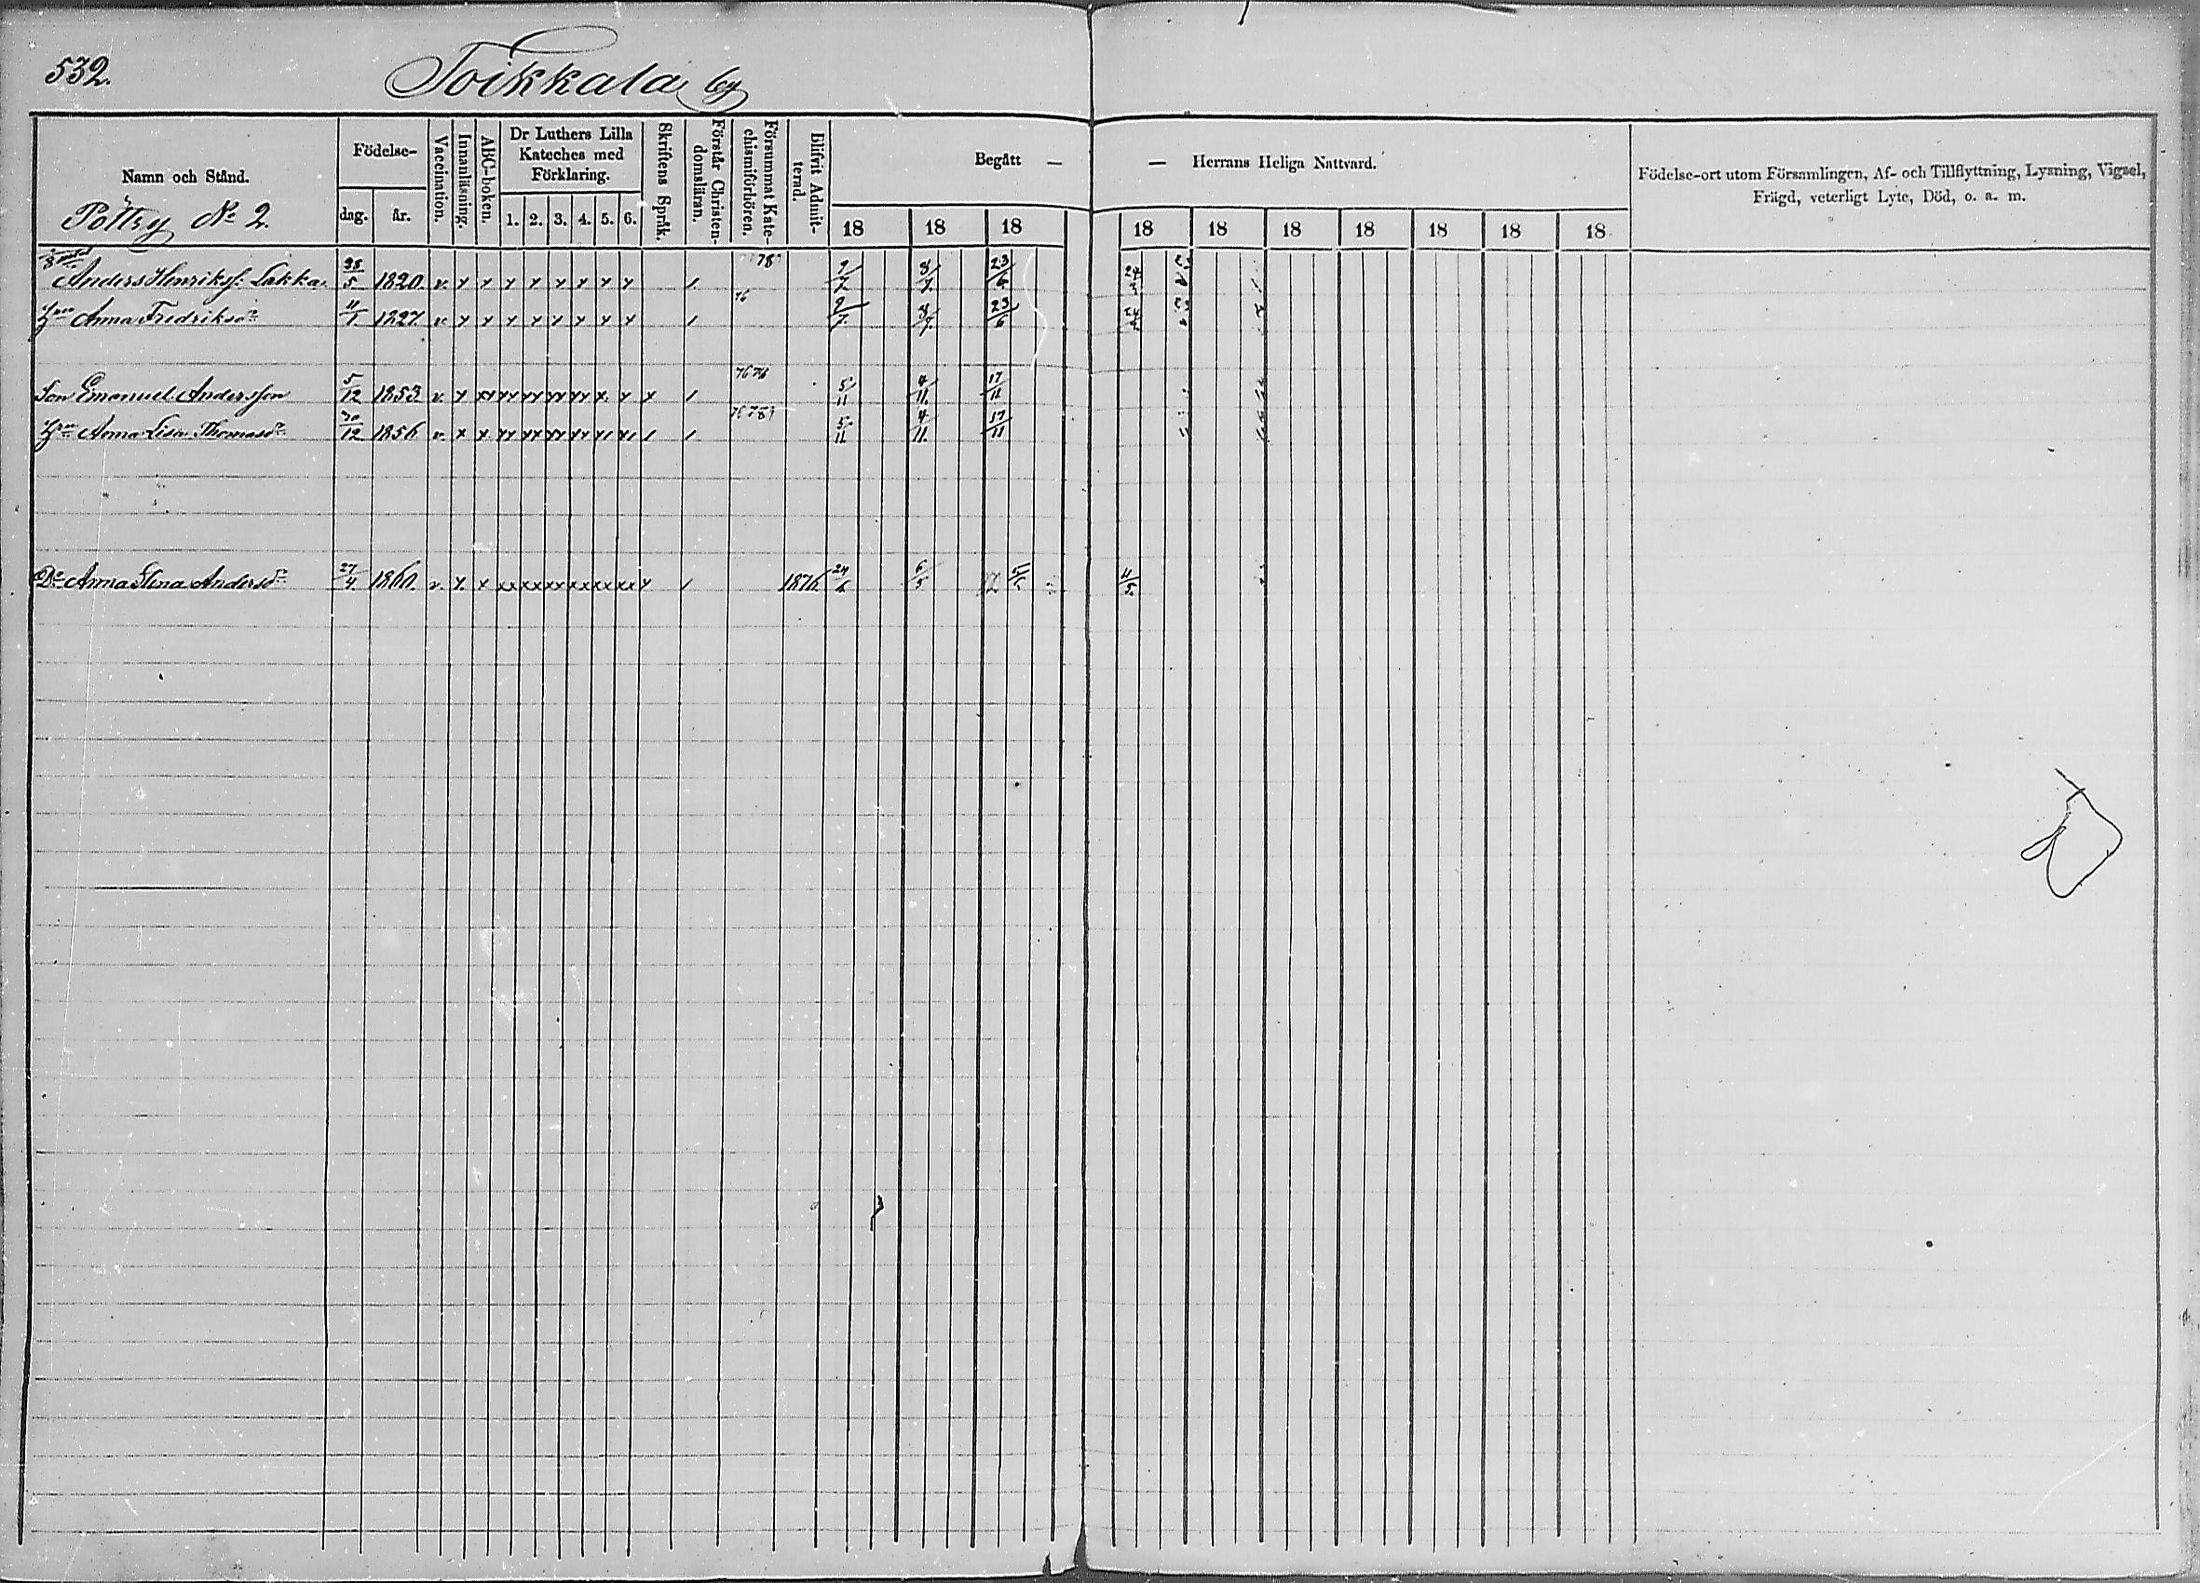 532.
Toikkala by
Namn och Stånd.
Pöttry No 2.
Födelse-
dag. år.
Vaccination.
Innanläsning.
ABC-boken.
Dr Luthers Lilla
Kateches med
Förklaring.
1. 2. 3. 4. 5. 6.
Skriftens Språk.
Förstår Christen-
domsläran.
Försummat Kate-
chismiförhören.
Blifvit Admit-
terad.
Begått —
18 18 18
— Herrans Heliga Nattvard.
18 18 18 18 18 18 18
Födelse-ort utom Församlingen, Af- och Tillflyttning, Lysning, Vigsel,
Frägd, veterligt Lyte, Död, o. a. m.
78
Anders Henrikss: Lakka 5 1820. v. x x x x x x x x / 7 23/6 24
76
Hru Anna Fredriksdr 1827. v. x x x x x x x x / 7 23/6 24
76 76
Son Emanuel Andersson 5/12 1853 v. x xx xx xx xx xx x x x / 5/11 4/11. 17/11
76 78
Hru Anna Lisa Thomasdr 30/12 1856 v. x x xx xx xx xx / / 5/11 4/11. 17/11
Dr Anna Stina Andersdr 27/4. 1860. v. x. x xx xx xx xx xx xx x / 1876. 24/6 6/5 11/5